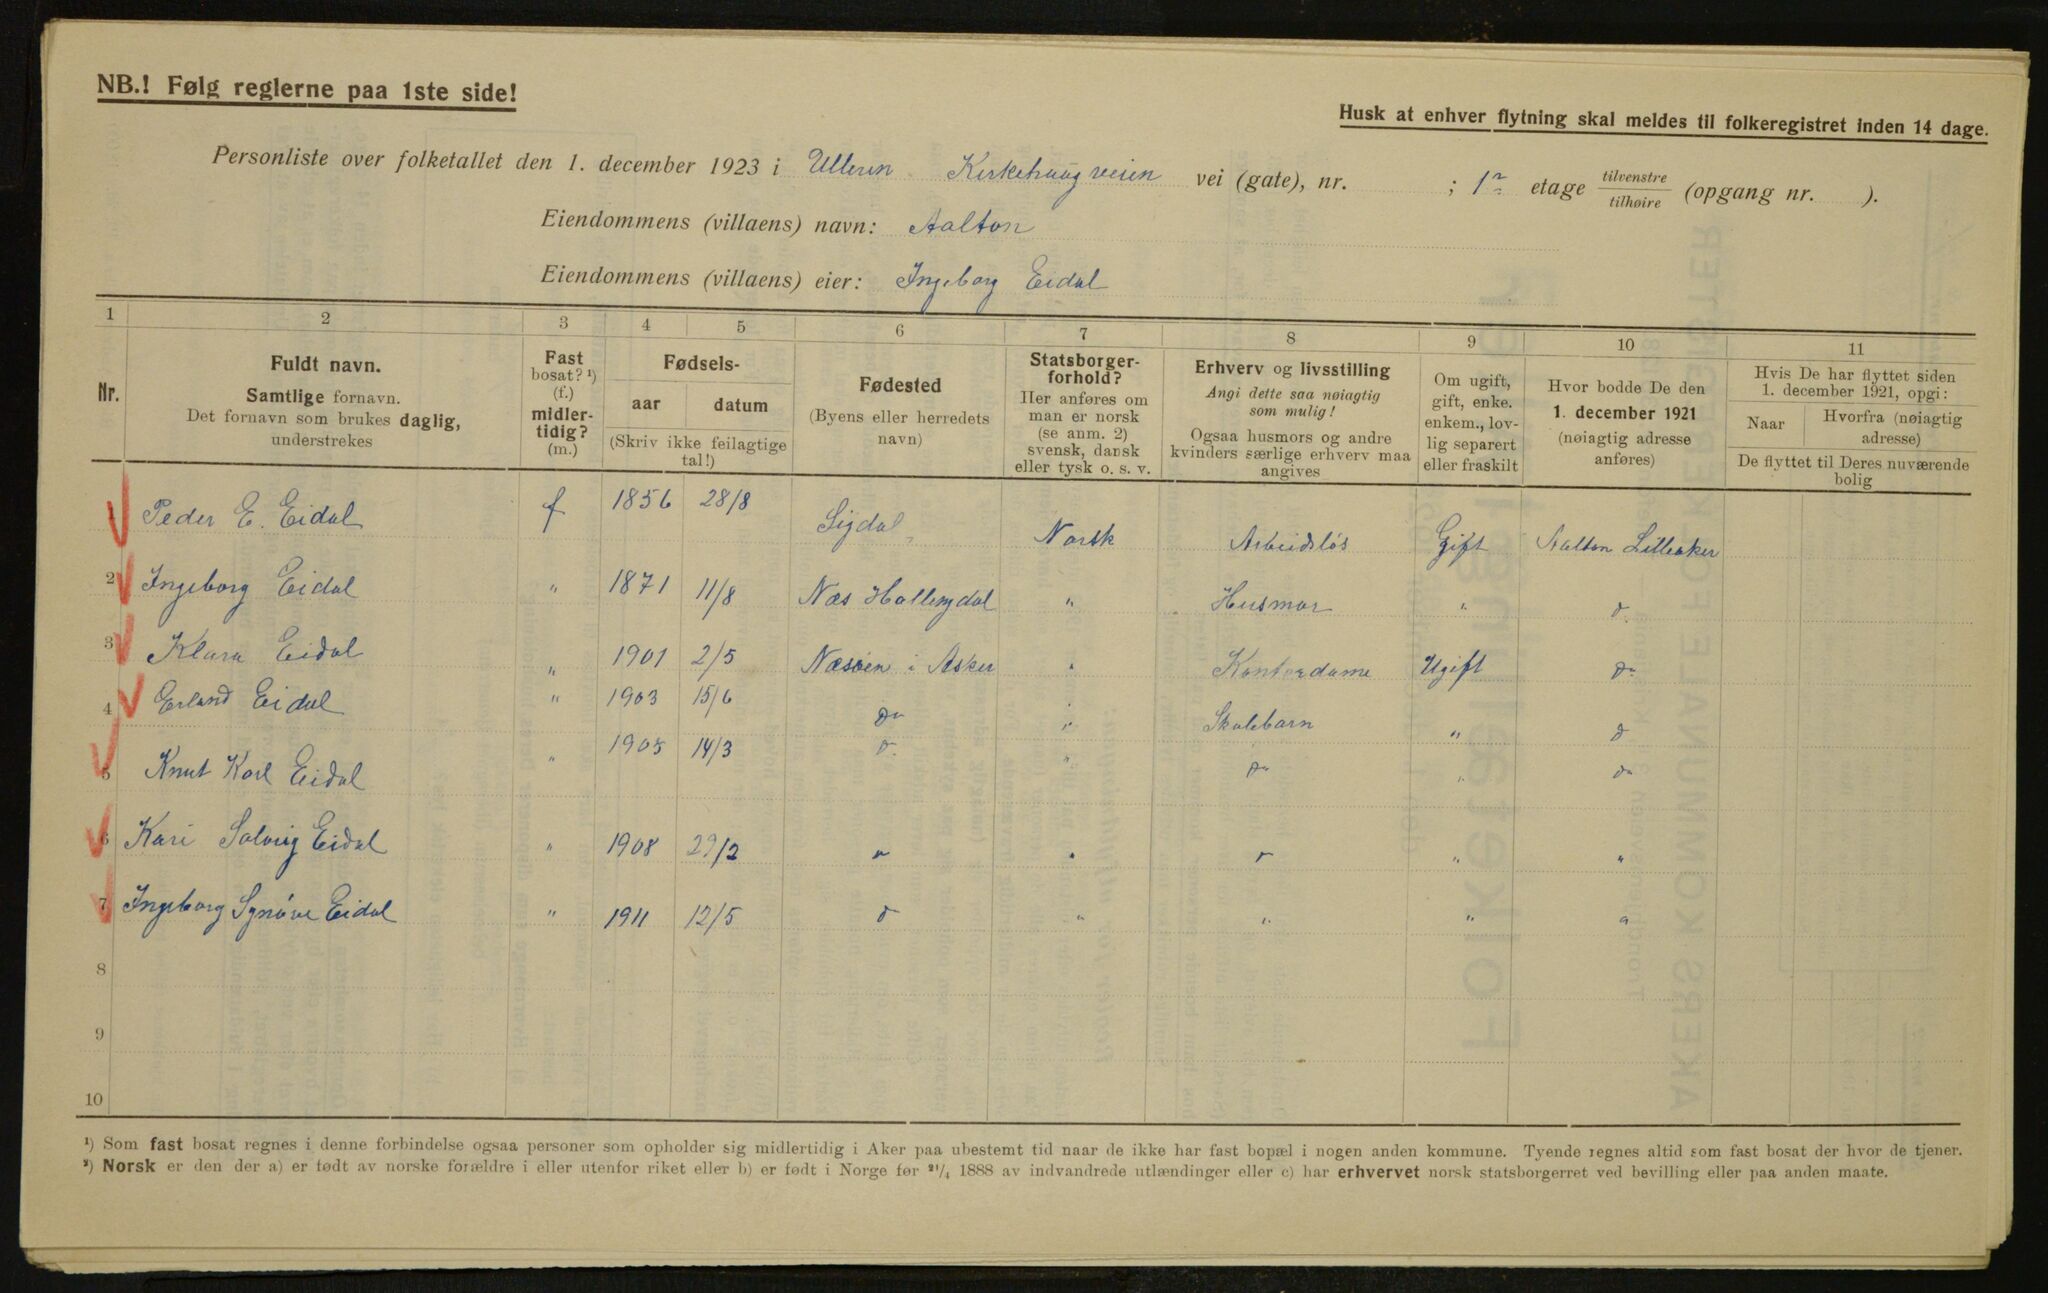 NB.! Følg reglerne paa 1ste side!
Husk at enhver flytning skal meldes til folkeregistret inden 14 dage.
Personliste over folketallet den 1. december 1923 i Ullern Kirkehaugveien vei (gate), nr. ; 1ⁿ etage tilvenstre/tilhøire (opgang nr. ).
Eiendommens (villaens) navn: Aalton
Eiendommens (villaens) eier: Ingeborg Eidal
1 2 3 4 5 6 7 8 9 10 11
Nr.
Fuldt navn.
Samtlige fornavn.
Det fornavn som brukes daglig,
understrekes
Fast
bosat? ¹)
(f.)
midler-
tidig?
(m.)
Fødsels-
aar datum
(Skriv ikke feilagtige
tal!)
Fødested
(Byens eller herredets
navn)
Statsborger-
forhold?
Her anføres om
man er norsk
(se anm. 2)
svensk, dansk
eller tysk o. s. v.
Erhverv og livsstilling
Angi dette saa nøiagtig
som mulig!
Ogsaa husmors og andre
kvinders særlige erhverv maa
angives
Om ugift,
gift, enke.
enkem., lov-
lig separert
eller fraskilt
Hvor bodde De den
1. december 1921
(nøiagtig adresse
anføres)
Hvis De har flyttet siden
1. december 1921, opgi:
Naar Hvorfra (nøiagtig
adresse)
De flyttet til Deres nuværende
bolig
1 Peder E. Eidal f 1856 28/8 Sigdal Norsk Arbeidsløs Gift Aalton Lilleaker
2 Ingeborg Eidal " 1871 11/8 Næs Hallingdal " Husmor " d
3 Klara Eidal " 1901 2/5 Næsøen i Asker " Kontordame Ugift do
4 Erland Eidal " 1903 15/6 do " Skolebarn " d
5 Knut Karl Eidal " 1905 14/3 d. " do " do
6 Kari Solveig Eidal " 1908 29/2 " " " " "
7 Ingeborg Synøve Eidal " 1911 12/5 d " " " "
8
9
10
¹) Som fast bosat regnes i denne forbindelse ogsaa personer som opholder sig midlertidig i Aker paa ubestemt tid naar de ikke har fast bopæl i nogen anden kommune. Tyende regnes altid som fast bosat der hvor de tjener.
²) Norsk er den der a) er født av norske forældre i eller utenfor riket eller b) er født i Norge før ²¹/₄ 1888 av indvandrede utlændinger eller c) har erhvervet norsk statsborgerret ved bevilling eller paa anden maate.